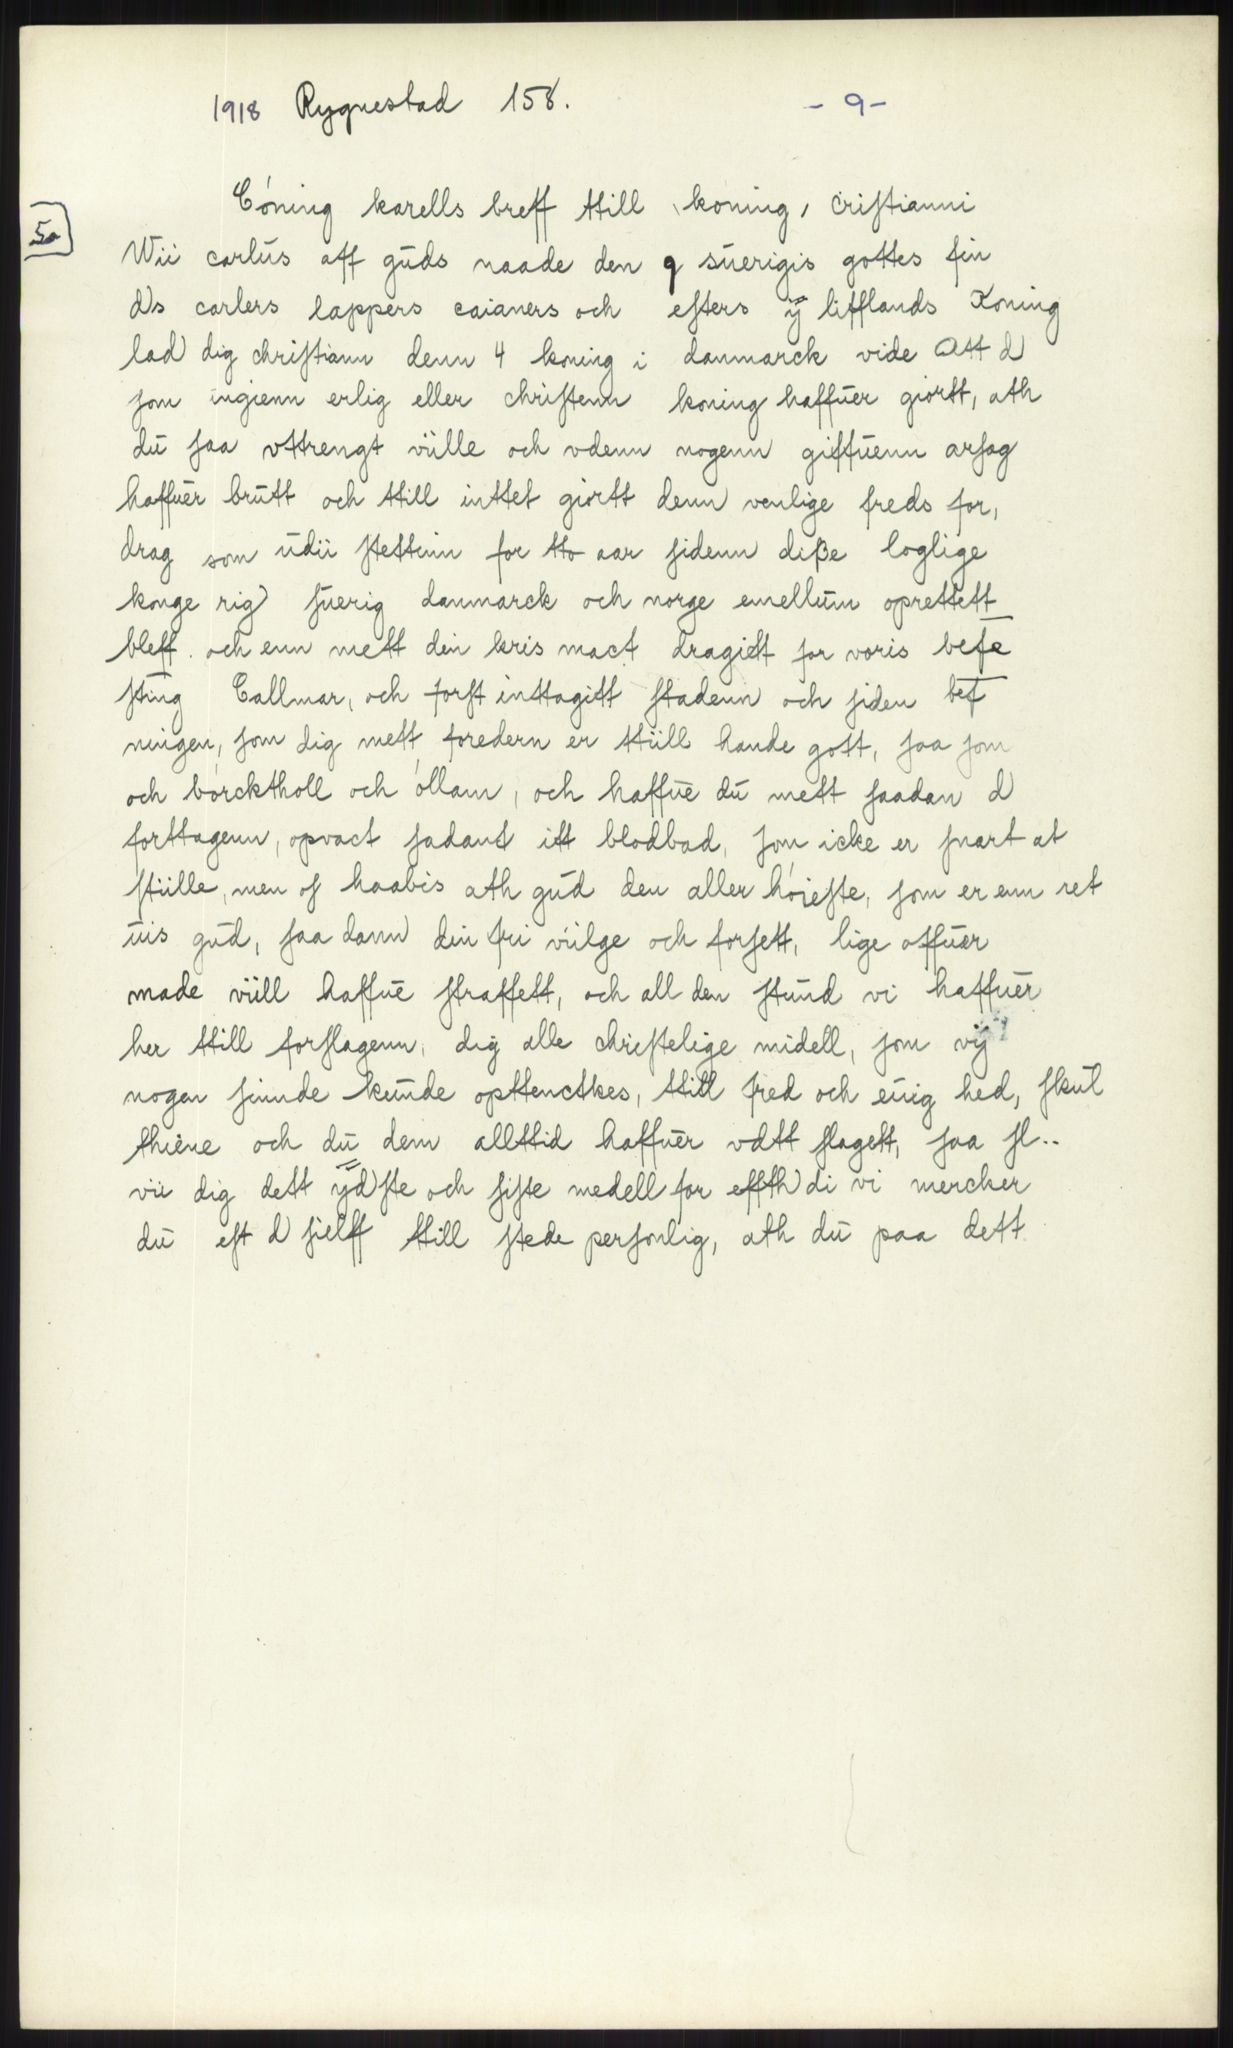 1918 Rygnestad 158. - 9 -
Cóning karells breff ttill koning, cristianni
5a
Wii carlus aff guds naade den 9 suerigis gottes fin
ds carlers lappers caianers och efters ÿ lifflands Koning
lad dig christiann denn 4 koning i danmarck vide Att d
som ingienn erlig eller christenn koning haffuer giortt, ath
du saa vttrengt viille och vdenn nogenn giffuenn arsag
haffuer brutt och ttill inttet giortt denn venlige freds for,
drag som udii stettinn for tto aar sidenn diße loglige
konge rig suerig danmarck och norge emellum oprettett
bleff. och enn mett din kris mact dragiett for voris befe
sting Callmar, och forst inttagitt stadenn och siden bef
ningen, som dig mett foredern er ttiill hande gott, saa som
och bórcktholl och óllam, och haffue du mett saadan d
forttagenn, opvact sadant itt blodbad, som icke er snart at
stiille, men of haabis ath gud den aller hóieste, som er enn ret
uis gud, saa dann din fri viilge och forsett, lige offuer
made viill haffue straffett, och all den stund vi haffuer
her ttill forslagenn, dig alle christelige midell, som vij
nogen sinde kunde opttenctkes, ttill fred och enig hed, skul
thiene och du dem allttid haffuer vdtt slagett, saa sl..
vii dig dett ÿdste och siste medell for effth di vi mercker
du est d sielff ttill stede personlig, ath du paa dett